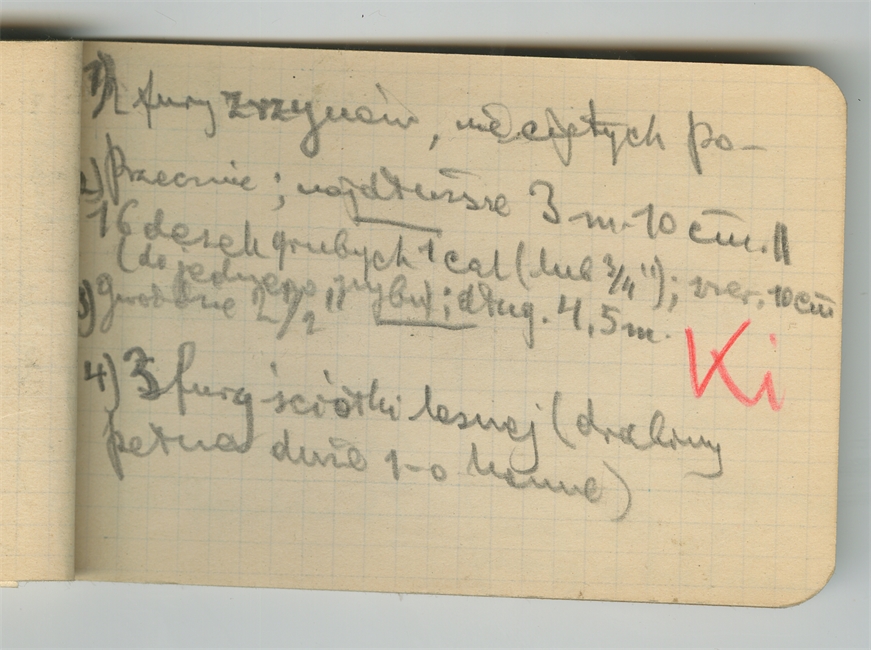 1) 2 fury zrzynów, nie ciętych po-
przecznie; najdłuższe 3 m. 10 cm. ||
2) 16 desek grubych 1 cal (lub 3/4"); szer. 10 cm
(do jednego grubości; dług. 4,5 m.
3) gwoździe 2 1/2"
Ki
4) 3 fury ściółki leśnej (drabiny
pełna duże 1-o konne)